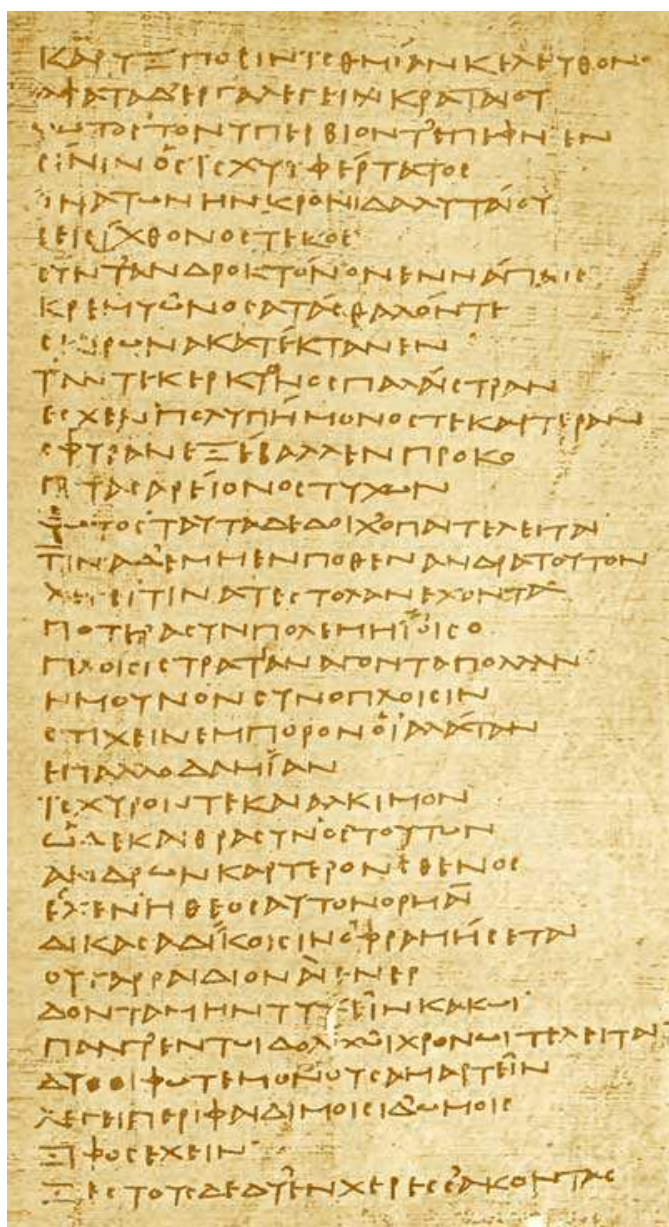 ΚΑΡΥΞΠΟϹΙΝΙϹΘΜΙΑΝΚΕΛΕΥΘΟΝ
ΑΦΑΤΑΔΕΡΓΑΛΕΓΕΙΚΡΑΤΑΙΟΥ
ΦΩΤΟϹΤΟΝΥΠΕΡΒΙΟΝΤΕΠΕΦΝΕΝ
ϹΙΝΙΝΟϹΙϹΧΥΙΦΕΡΤΑΤΟϹ
ΘΝΑΤΩΝΗΝΚΡΟΝΙΔΑΛΥΤΑΙΟΥ
ϹΕΙϹΙΧΘΟΝΟϹΤΕΚΟϹ
ϹΥΝΤΑΝΔΡΟΚΤΟΝΟΝΕΝΝΑΠΑΙϹ
ΚΡΕΜΥΩΝΟϹΑΤΑϹΘΑΛΟΝΤΕ
ϹΚΙΡΩΝΑΚΑΤΕΚΤΑΝΕΝ
ΤΑΝΤΕΚΕΡΚΥΟΝΟϹΠΑΛΑΙϹΤΡΑΝ
ΕϹΧΕΝΠΟΛΥΠΗΜΟΝΟϹΤΕΚΑΡΤΕΡΑΝ
ϹΦΥΡΑΝΕΞΕΒΑΛΛΕΝΠΡΟΚΟ
ΠΤΑϹΑΡΕΙΟΝΟϹΤΥΧΩΝ
ΦΩΤΟϹΤΑΥΤΑΔΕΔΟΙΧΟΠΑΤΕΛΕΙΤΑΙ
ΤΙΝΑΔΕΜΜΕΝΠΟΘΕΝΑΝΔΡΑΤΟΥΤΟΝ
ΛΕΓΕΙΤΙΝΑΤΕϹΤΟΛΑΝΕΧΟΝΤΑ
ΠΟΤΕΡΑϹΥΝΠΟΛΕΜΗΪΟΙϹΟ
ΠΛΟΙϹΙϹΤΡΑΤΙΑΝΑΓΟΝΤΑΠΟΛΛΑΝ
ΗΜΟΥΝΟΝϹΥΝΟΠΛΟΙϹΙΝ
ϹΤΙΧΕΙΝΕΜΠΟΡΟΝΟΙΑΛΑΤΑΝ
ΕΠΑΛΛΟΔΑΜΙΑΝ
ΙϹΧΥΡΟΝΤΕΚΑΙΑΛΚΙΜΟΝ
ΩΔΕΚΑΙΘΡΑϹΥΝΟϹΤΟΥΤΩΝ
ΑΝΔΡΩΝΚΑΡΤΕΡΟΝϹΘΕΝΟϹ
ΕϹΧΕΝΗΘΕΟϹΑΥΤΟΝΟΡΜΑΙ
ΔΙΚΑϹΑΔΙΚΟΙϹΙΝΟΦΡΑΜΗϹΕΤΑΙ
ΟΥΓΑΡΡΑΙΔΙΟΝΑΙΕΝΕΡ
ΔΟΝΤΑΜΗΝΤΥΧΕΙΝΚΑΚΩΙ
ΠΑΝΤΕΝΤΩΙΔΟΛΙΧΩΙΧΡΟΝΩΙΤΕΛΕΙΤΑΙ
ΔΥΟΟΙΦΩΤΕΜΟΝΟΥϹΑΜΑΡΤΕΙΝ
ΛΕΓΕΙΠΕΡΙΦΑΙΔΙΜΟΙϹΙΔΩΜΟΙϹ
ΞΙΦΟϹΕΧΕΙΝ
ΞΕϹΤΟΥϹΔΕΔΥΕΝΧΕΡΕϹϹΑΚΟΝΤΑϹ